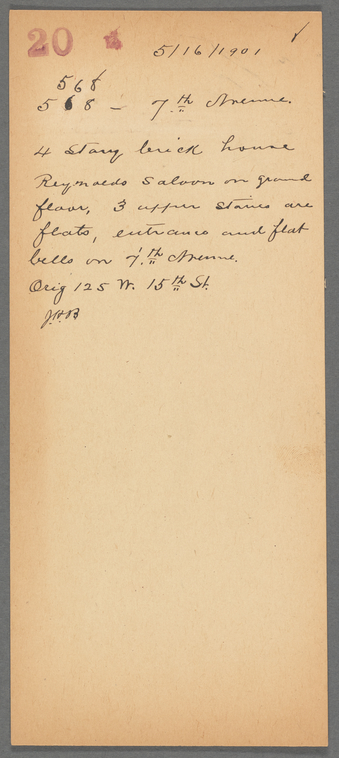 20 5/16/1901 ✓
568
568 – 7th Avenue.
4 Story brick house
Reynolds Saloon on ground
floor, 3 upper stories are
flats, entrance and flat
bells on 7th Avenue.
Orig 125 W. 15th St.
J.H.B